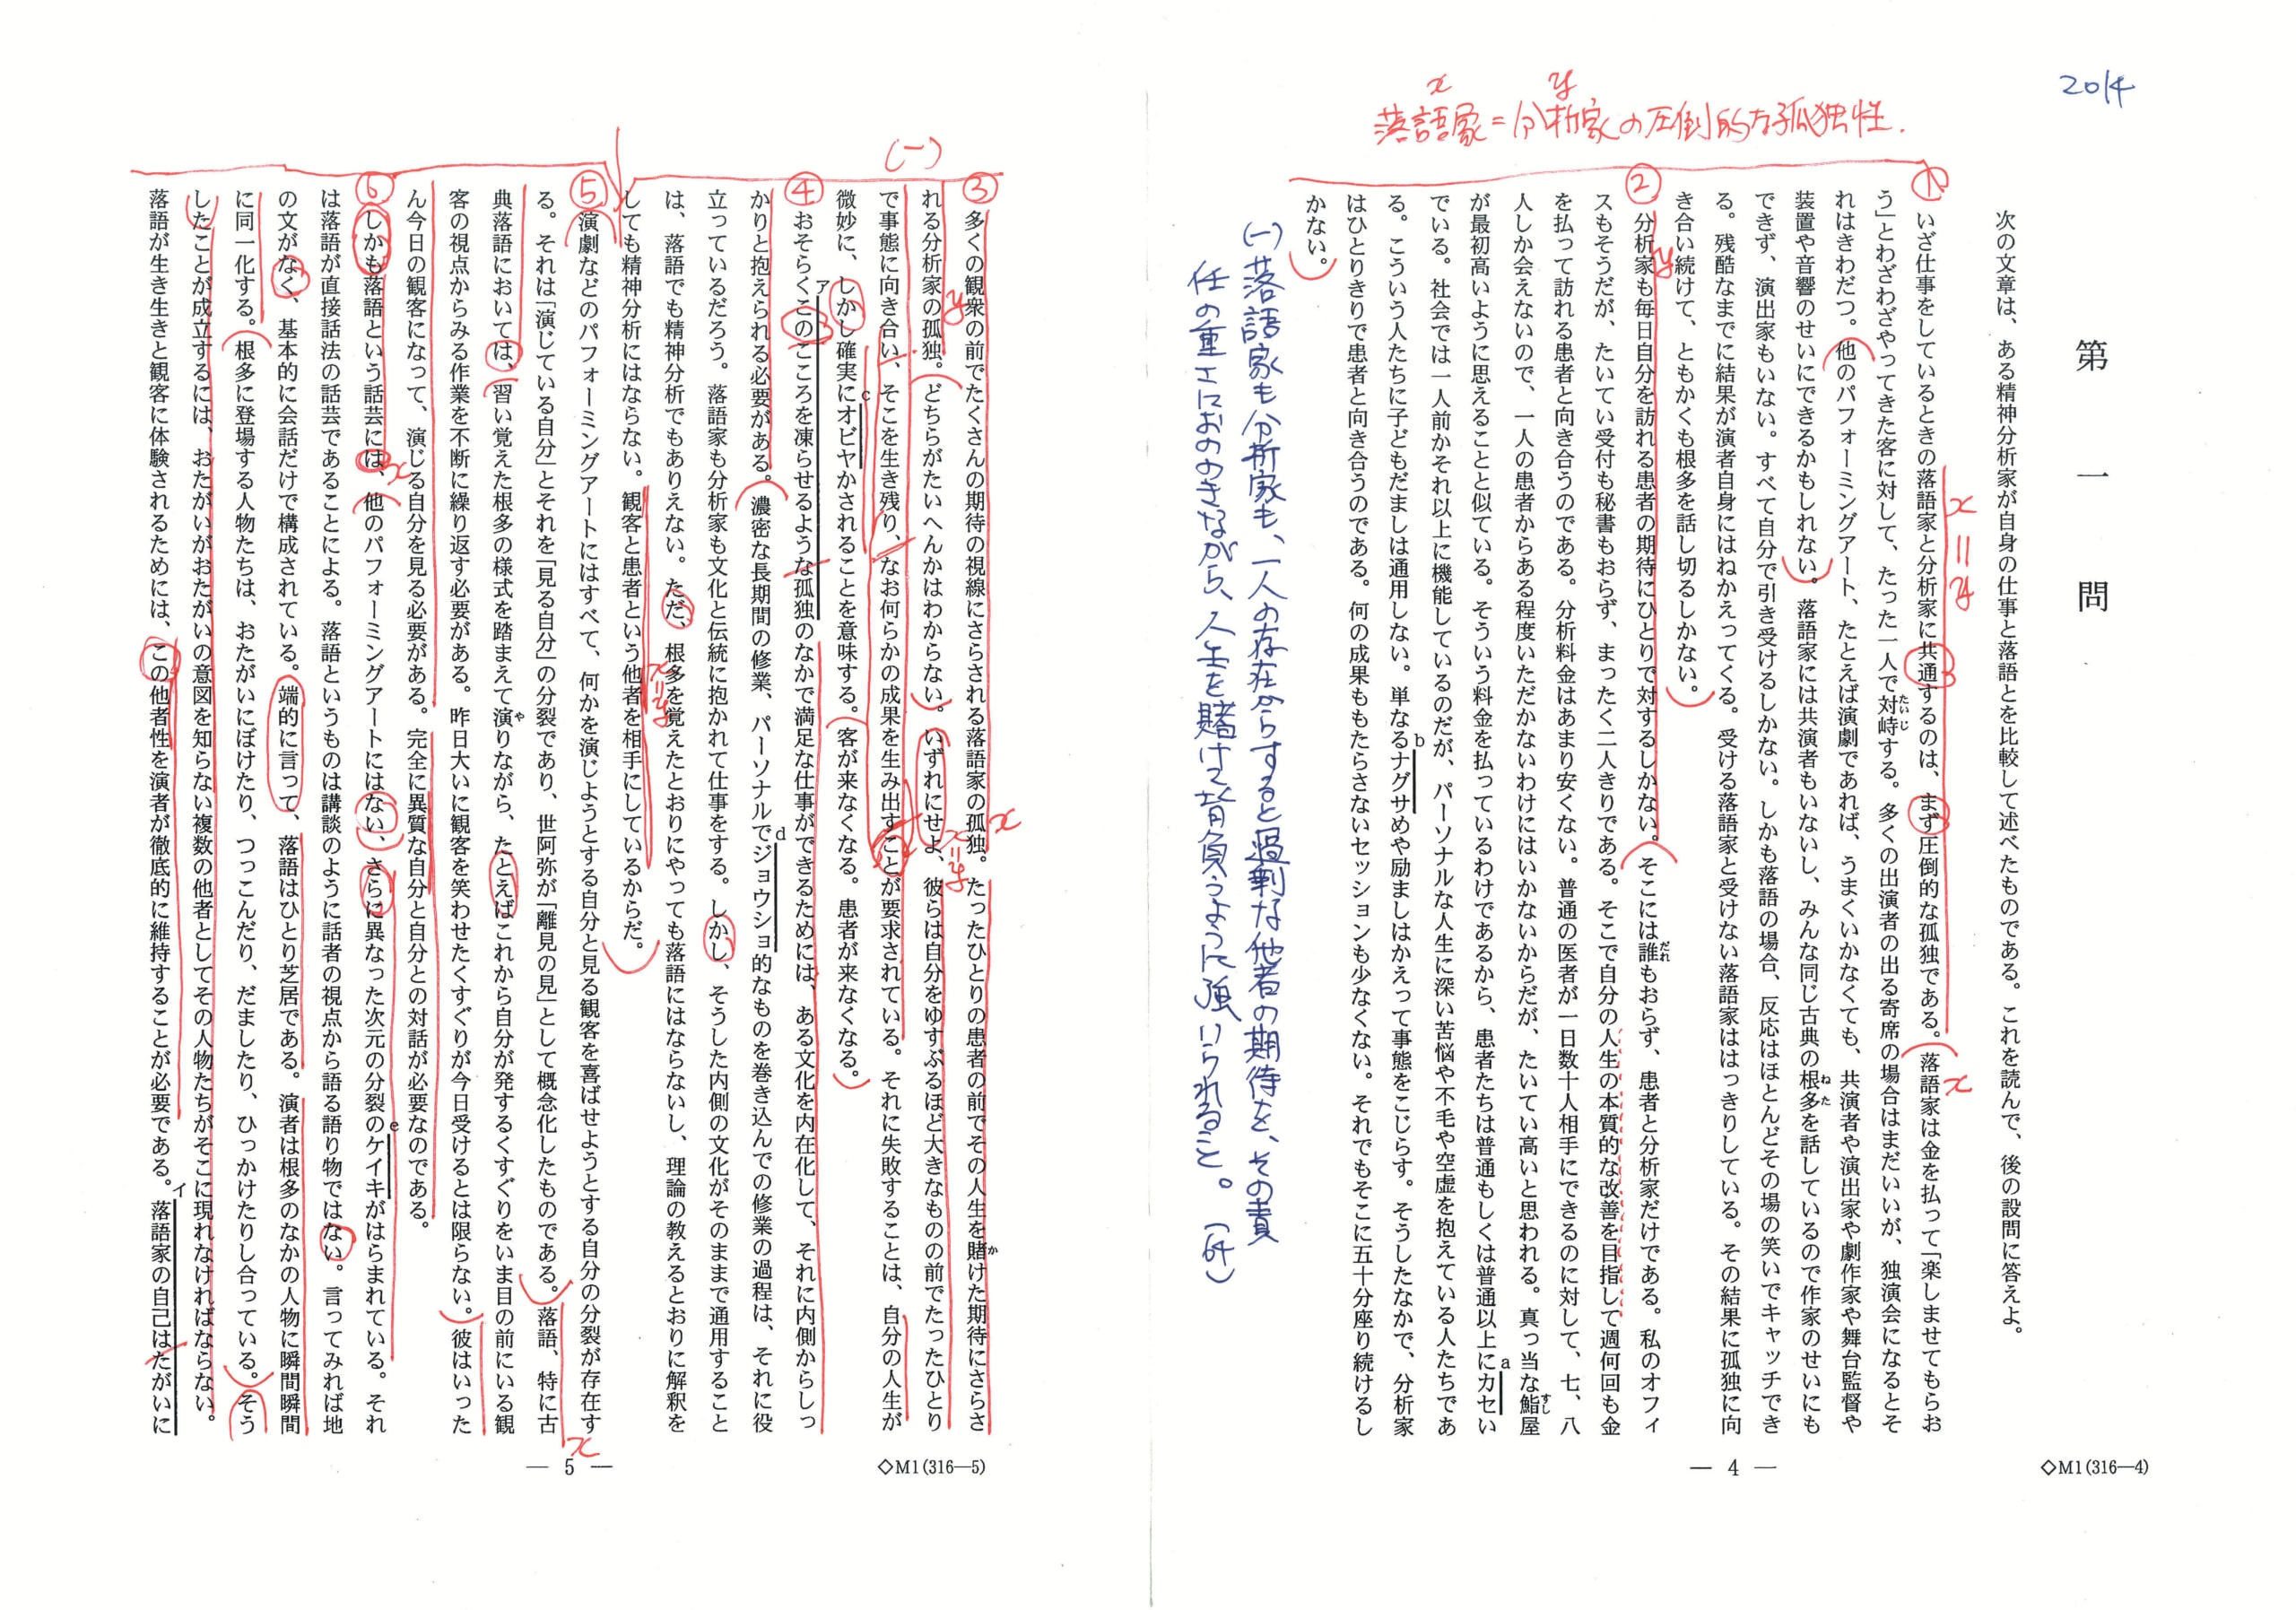 2014
x y
落語家=分析家の圧倒的な孤独性.
第一問
次の文章は、ある精神分析家が自身の仕事と落語とを比較して述べたものである。これを読んで、後の設問に答えよ。
①
いざ仕事をしているときの落語家と分析家に共通するのは、まず圧倒的な孤独である。落語家は金を払って「楽しませてもらお
う」とわざわざやってきた客に対して、たった一人で対峙(たいじ)する。多くの出演者の出る寄席の場合はまだいいが、独演会になるとそ
れはきわだつ。他のパフォーミングアート、たとえば演劇であれば、うまくいかなくても、共演者や演出家や劇作家や舞台監督や
装置や音響のせいにできるかもしれない。落語家には共演者もいないし、みんな同じ古典の根多(ねた)を話しているので作家のせいにも
できず、演出家もいない。すべて自分で引き受けるしかない。しかも落語の場合、反応はほとんどその場の笑いでキャッチでき
る。残酷なまでに結果が演者自身にはねかえってくる。受ける落語家と受けない落語家ははっきりしている。その結果に孤独に向
き合い続けて、ともかくも根多を話し切るしかない。
②
分析家も毎日自分を訪れる患者の期待にひとりで対するしかない。そこには誰(だれ)もおらず、患者と分析家だけである。私のオフィ
スもそうだが、たいてい受付も秘書もおらず、まったく二人きりである。そこで自分の人生の本質的な改善を目指して週何回も金
を払って訪れる患者と向き合うのである。分析料金はあまり安くない。普通の医者が一日数十人相手にできるのに対して、七、八
人しか会えないので、一人の患者からある程度いただかないわけにはいかないからだが、たいてい高いと思われる。真っ当な鮨(すし)屋
が最初高いように思えることと似ている。そういう料金を払っているわけであるから、患者たちは普通もしくは普通以上にaカセい
でいる。社会では一人前かそれ以上に機能しているのだが、パーソナルな人生に深い苦悩や不毛や空虚を抱えている人たちであ
る。こういう人たちに子どもだましは通用しない。単なるbナグサめや励ましはかえって事態をこじらす。そうしたなかで、分析家
はひとりきりで患者と向き合うのである。何の成果ももたらさないセッションも少なくない。それでもそこに五十分座り続けるし
かない。
(一)落語家も分析家も、一人の存在からすると過剰な他者の期待を、その責
任の重さにおののきながら、人生を賭けて背負うように強いられること。(64)
— 4 —
◇M1(316—4)
(一)
③
多くの観衆の前でたくさんの期待の視線にさらされる落語家の孤独。たったひとりの患者の前でその人生を賭(か)けた期待にさらさ
れる分析家の孤独。どちらがたいへんかはわからない。いずれにせよ、彼らは自分をゆすぶるほど大きなものの前でたったひとり
で事態に向き合い、そこを生き残り、なお何らかの成果を生み出すことが要求されている。それに失敗することは、自分の人生が
微妙に、しかし確実にcオビヤかされることを意味する。客が来なくなる。患者が来なくなる。
④
おそらくアこのこころを凍らせるような孤独のなかで満足な仕事ができるためには、ある文化を内在化して、それに内側からしっ
かりと抱えられる必要がある。濃密な長期間の修業、パーソナルでdジョウショ的なものを巻き込んでの修業の過程は、それに役
立っているだろう。落語家も分析家も文化と伝統に抱かれて仕事をする。しかし、そうした内側の文化がそのままで通用すること
は、落語でも精神分析でもありえない。ただ、根多を覚えたとおりにやっても落語にはならないし、理論の教えるとおりに解釈を
しても精神分析にはならない。観客と患者という他者を相手にしているからだ。
⑤
演劇などのパフォーミングアートにはすべて、何かを演じようとする自分と見る観客を喜ばせようとする自分の分裂が存在す
る。それは「演じている自分」とそれを「見る自分」の分裂であり、世阿弥が「離見の見」として概念化したものである。落語、特に古
典落語においては、習い覚えた根多の様式を踏まえて演(や)りながら、たとえばこれから自分が発するくすぐりをいま目の前にいる観
客の視点からみる作業を不断に繰り返す必要がある。昨日大いに観客を笑わせたくすぐりが今日受けるとは限らない。彼はいった
ん今日の観客になって、演じる自分を見る必要がある。完全に異質な自分と自分との対話が必要なのである。
⑥
しかも落語という話芸には、他のパフォーミングアートにはない、さらに異なった次元の分裂のeケイキがはらまれている。それ
は落語が直接話法の話芸であることによる。落語というものは講談のように話者の視点から語る語り物ではない。言ってみれば地
の文がなく、基本的に会話だけで構成されている。端的に言って、落語はひとり芝居である。演者は根多のなかの人物に瞬間瞬間
に同一化する。根多に登場する人物たちは、おたがいにぼけたり、つっこんだり、だましたり、ひっかけたりし合っている。そう
したことが成立するには、おたがいがおたがいの意図を知らない複数の他者としてその人物たちがそこに現れなければならない。
落語が生き生きと観客に体験されるためには、この他者性を演者が徹底的に維持することが必要である。イ落語家の自己はたがいに
— 5 —
◇M1(316—5)